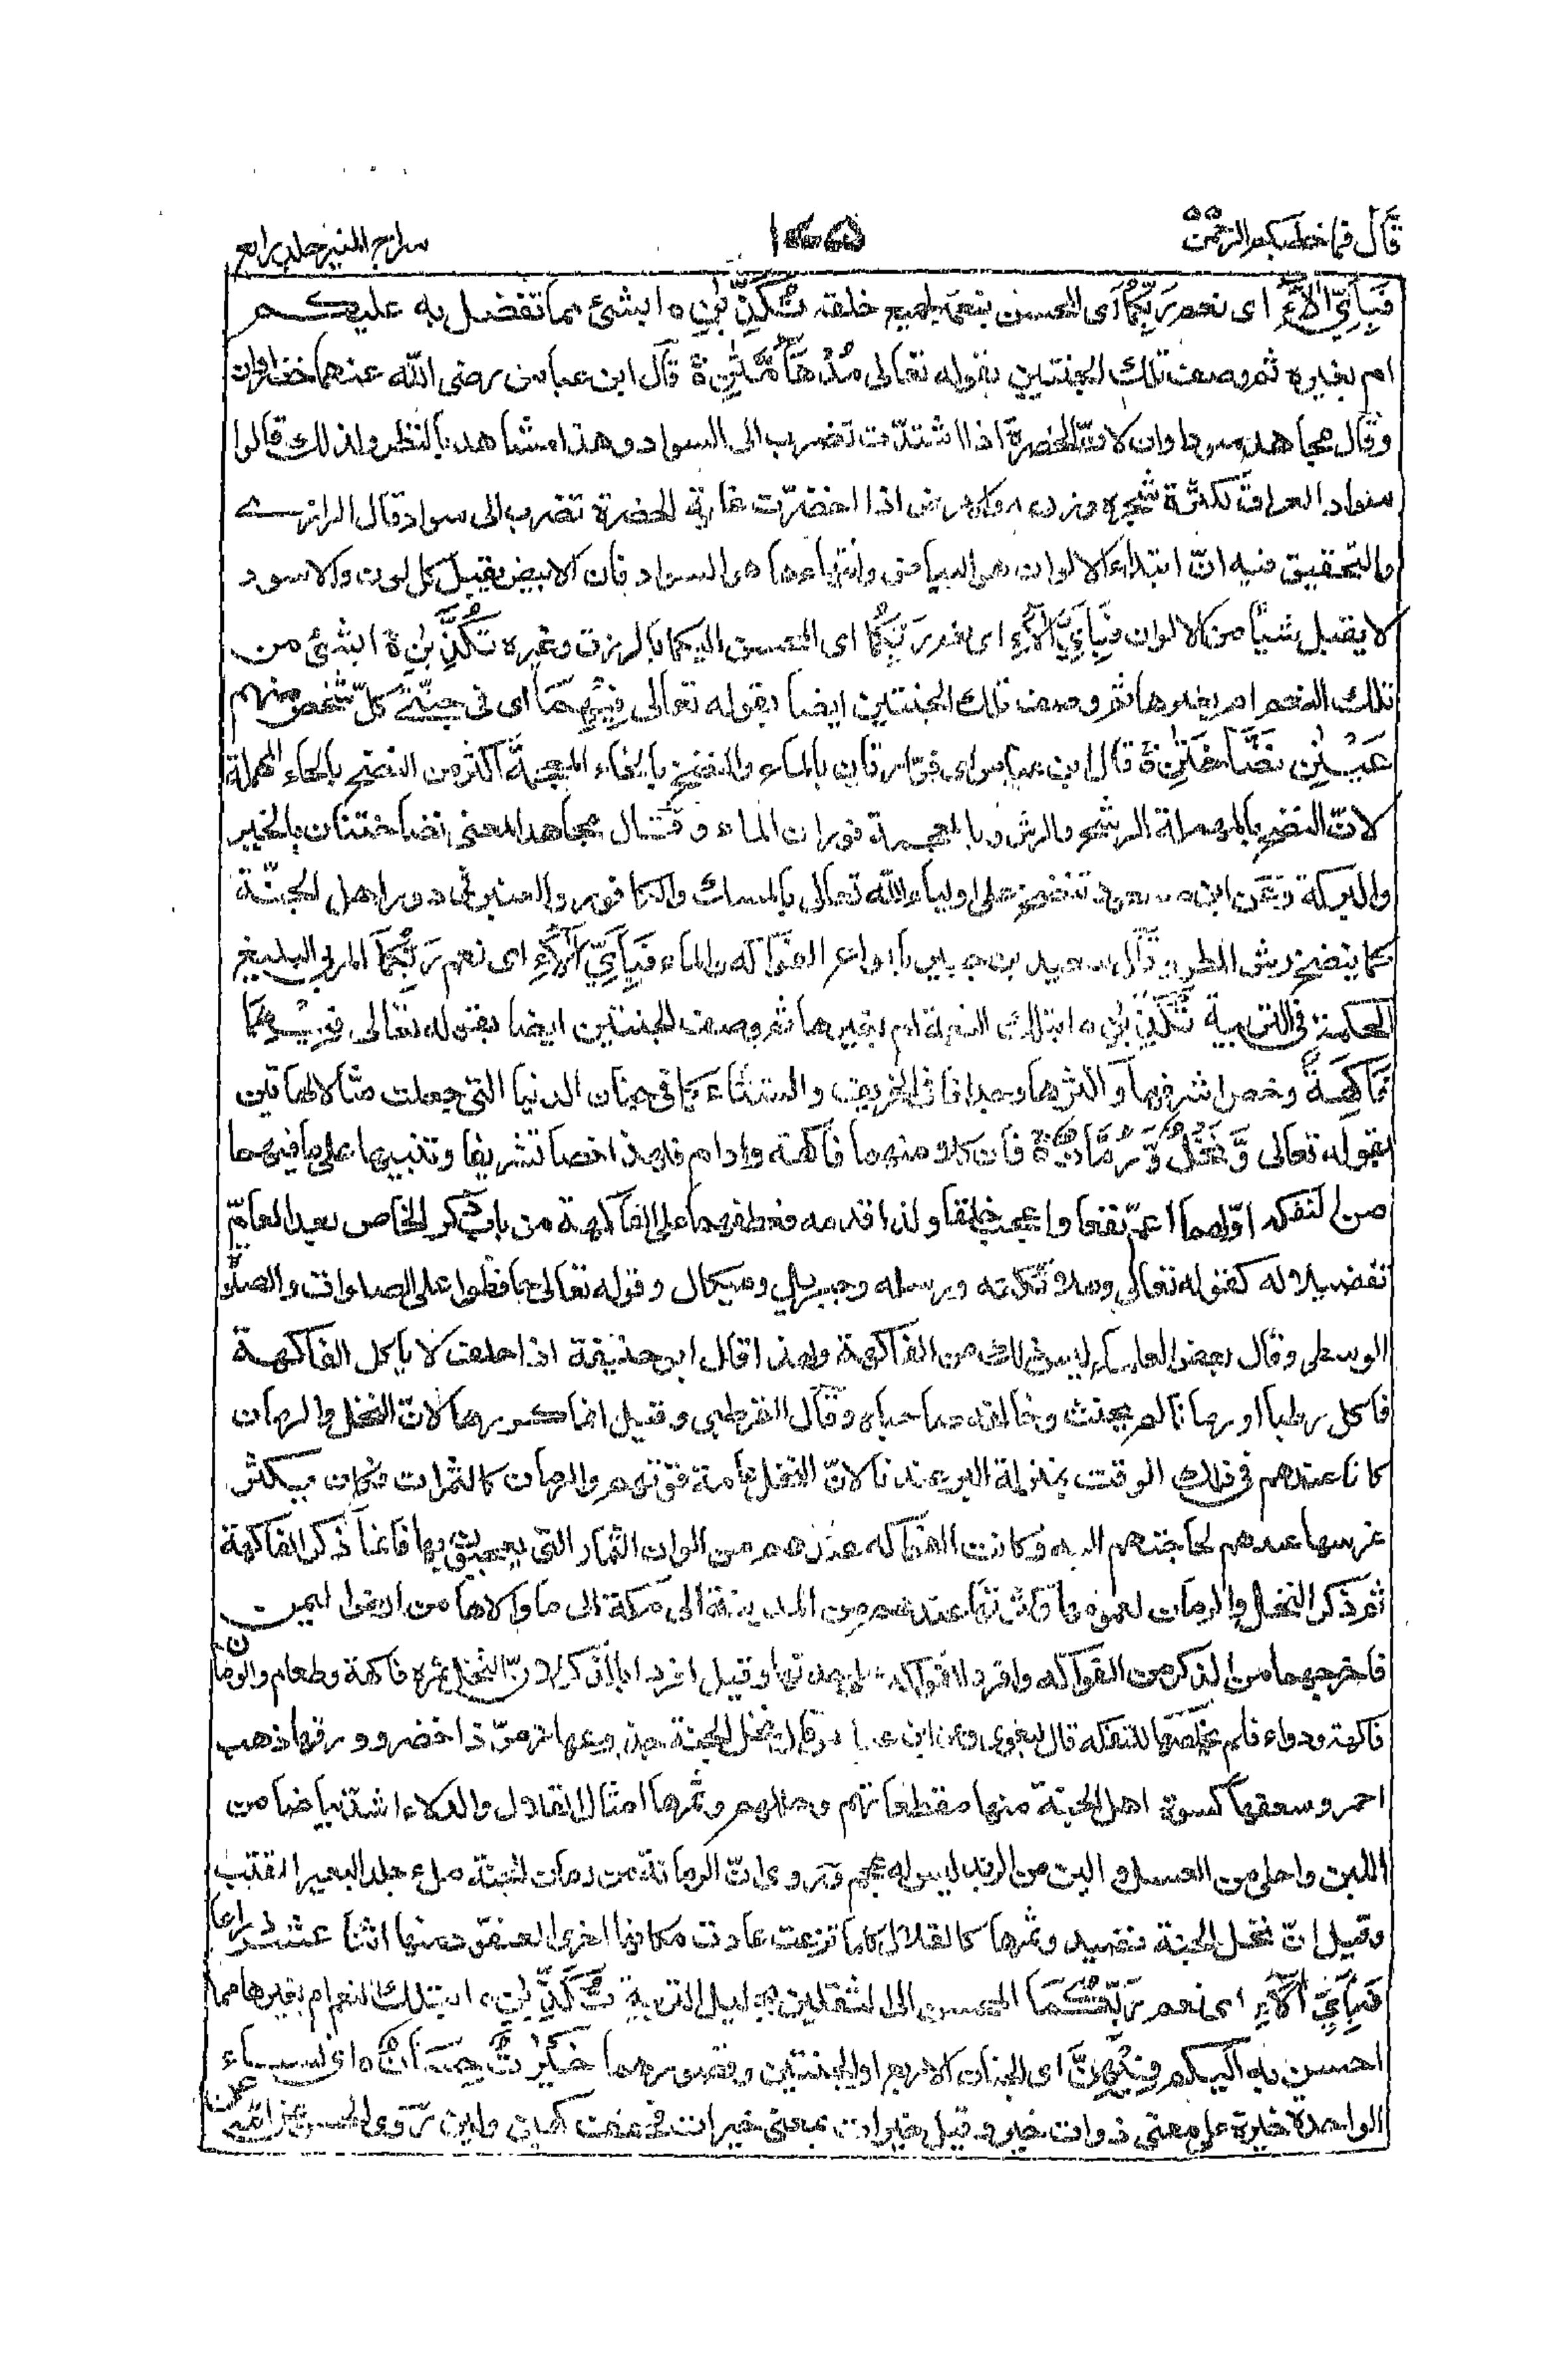 قال فما خطبكم الرحمن
سراج المنير جلد رابع
فَبِاَيِّ اٰلَآءِ اى نعم رَبِّكُمَا اى المحسن بنعمه لجميع خلقه تُكَذِّبٰنِ ه ابشئ مما تفضل به عليكم
ام بغيره ثم وصف تلك الجنتين بقوله تعالى مُدْهَآمَّتٰنِ ة قال ابن عباس رضى الله عنهما خضراوان
وقال مجاهد سوداوان لانّ الخضرة اذا اشتدّت تضرب الى السواد وهذا مشاهد بالنظر ولذلك قالوا
سواد العراق لكثرة شجره وزرعه والارض اذا اخضرّت غاية الخضرة تضرب الى سواد قال الرازى
والتحقيق فيه انّ ابتداء الالوان هو البياض وانتهاءها هو السواد فان الابيض يقبل كل لون والاسود
لا يقبل شيأ من الالوان فَبِاَيِّ اٰلَآءِ اى نعم رَبِّكُمَا اى المحسن اليكما بالرزق وغيره تُكَذِّبٰنِ ة ابشئ من
تلك النعم ام بغيرها ثم وصف تلك الجنتين ايضا بقوله تعالى فِيْهِمَا اى فى جنّة كلّ شخص منهم
عَيْنٰنِ نَضَّاخَتٰنِ ة قال ابن عباس اى فوّارتان بالماء والنضخ بالخاء المعجمة اكثر من النضح بالحاء المهملة
لانّ النضح بالمهملة الرشح والرش وبالمعجمة فوران الماء وقال مجاهد المعنى نضاختان بالخير
والبركة وعن ابن مسعود تنضخ على اولياء الله تعالى بالمسك والكافور والعنبر فى دور اهل الجنّة
كما ينضخ رش المطر وقال سعيد بن جبير بانواع الفواكه والماء فَبِاَيِّ اٰلَآءِ اى نعم رَبِّكُمَا المربى البليغ
الحكمة فى التربية تُكَذِّبٰنِ ه ابتلك النعمة ام بغيرها ثم وصف الجنتين ايضا بقوله تعالى فِيْهِمَا
فَاكِهَةٌ وخص اشرفها واكثرها وجدانا فى الخريف والشتاء كما فى جنان الدنيا التى جعلت مثالا لهاتين
بقوله تعالى وَّنَخْلٌ وَّرُمَّانٌ ة فان كلا منهما فاكهة وادام فلهذا خصا تشريفا وتنبيها على ما فيهما
من التفكه اوّلهما اعمّ نفعا واعجب خلقا ولذا قدمه فعطفهما على الفاكهة من باب ذكر الخاص بعد العامّ
تفضيلا له كقوله تعالى وملائكته ورسله وجبريل وميكال وقوله تعالى حافظوا على الصلوات والصلوة
الوسطى وقال بعض العلماء ليس ذلك من الفاكهة ولهذا قال ابو حنيفة اذا حلف لا ياكل الفاكهة
فاكل رطبا او رمانا لم يحنث وخالفه صاحباه وقال القرطبى وقيل انما كررهما لانّ النخل والرمان
كانا عندهم فى ذلك الوقت بمنزلة البر عندنا لانّ النخل عامة قوتهم والرمان كالثمرات فكان يكثر
غرسها عندهم لحاجتهم اليه وكانت الفواكه عندهم من الوان الثمار التى يعجبون بها فانما ذكر الفاكهة
ثم ذكر النخل والرمان لعمومهما وكثرتهما عندهم من المدينة الى مكة الى ما والاها من ارض اليمن
فاخرجهما من الذكر من الفواكه وافرد الفواكه على حدتها وقيل افردا بالذكر لانّ النخل ثمره فاكهة وطعام والرمان
فاكهة ودواء فلم يخلصا للتفكه قال البغوى وعن ابن عباس قال نخل الجنة جذوعها زمرّذ اخضر وورقها ذهب
احمر وسعفها كسوة اهل الجنة منها مقطعاتهم وحللهم وثمرها امثال القلال والدلاء اشدّ بياضا من
اللبن واحلى من العسل والين من الزبد ليس له عجم وروى انّ الرمانة من رمان الجنة ملء جلد البعير المقتب
وقيل انّ نخل الجنة نضيد وثمرها كالقلال كلما نزعت عادت مكانها اخرى العنقود منها اثنا عشر ذراعا
فَبِاَيِّ اٰلَآءِ اى نعم رَبِّكُمَا المحسن الى الثقلين بجليل التربية تُكَذِّبٰنِ ه ابتلك النعم ام بغيرها مما
احسن به اليكم فِيْهِنَّ اى الجنان الاربع او الجنتين وقصورهما خَيْرٰتٌ حِسَانٌ ه اى نساء
الواحدة خيرة على معنى ذوات خير وقيل خيرات بمعنى خيرات فخففت كهين ولين روى الحسن عن